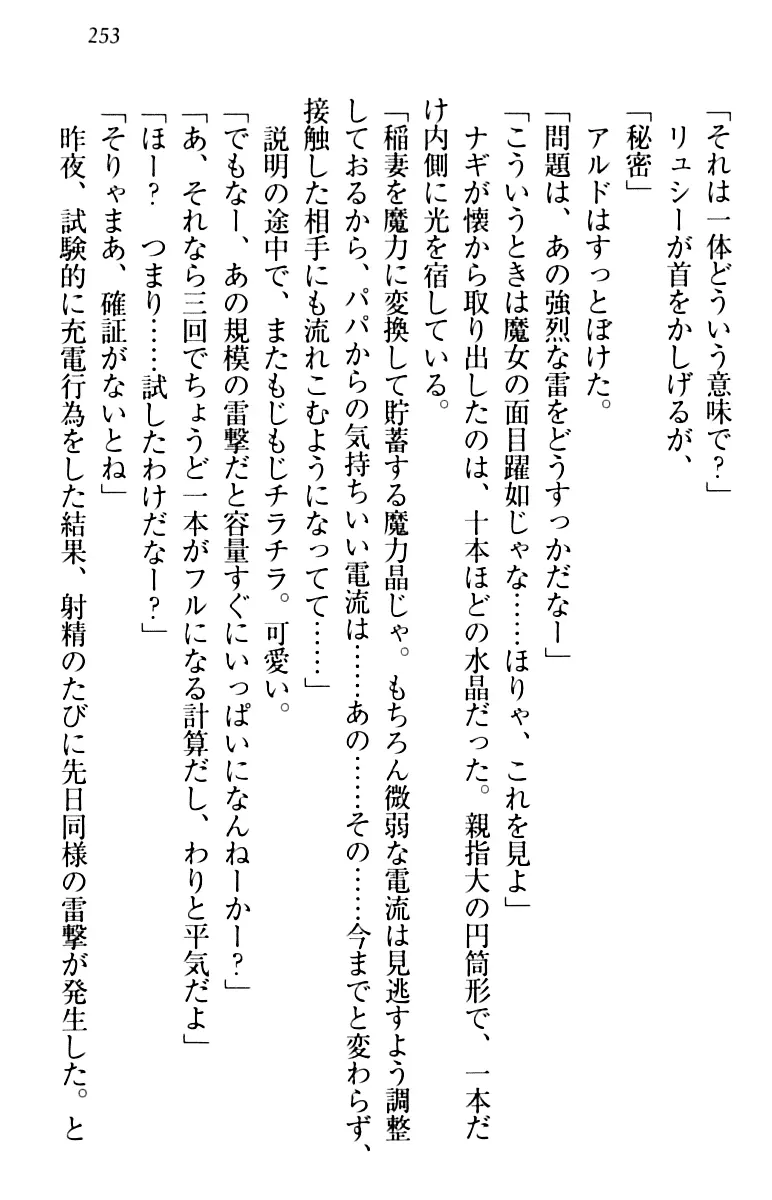 253
「それは一体どういう意味で？」
リュシーが首をかしげるが、
「秘密」
アルドはすっとぼけた。
「問題は、あの強烈な雷をどうすっかだなー」
「こういうときは魔女の面目躍如じゃな……ほりゃ、これを見よ」
ナギが懐から取り出したのは、十本ほどの水晶だった。親指大の円筒形で、一本だ
け内側に光を宿している。
「稲妻を魔力に変換して貯蓄する魔力晶じゃ。もちろん微弱な電流は見逃すよう調整
しておるから、パパからの気持ちいい電流は……あの……その……今までと変わらず、
接触した相手にも流れこむようになってて……」
説明の途中で、またもじもじチラチラ。可愛い。
「でもなー、あの規模の雷撃だと容量すぐにいっぱいになんねーかー？」
「あ、それなら三回でちょうど一本がフルになる計算だし、わりと平気だよ」
「ほー？　つまり……試したわけだなー？」
「そりゃまあ、確証がないとね」
昨夜、試験的に充電行為をした結果、射精のたびに先日同様の雷撃が発生した。と